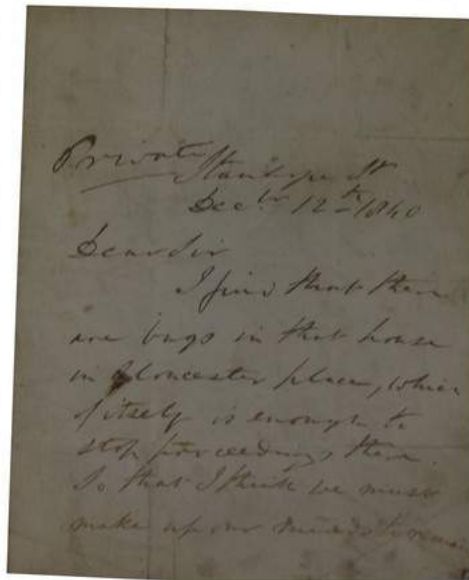 Private
Stanhope St
Decbr 12th 1840
Dear Sir
I find that there
are bugs in that house
in Gloucester place, which
of itself is enough to
stop proceedings there.
So that I think we must
make up our minds to